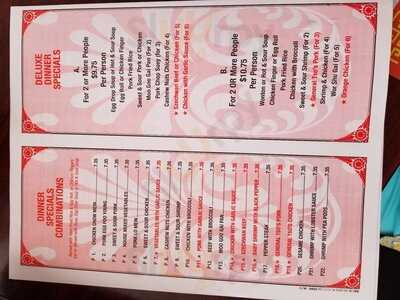 DELUXE
DINNER
SPECIALS
A.
For 2 or More People
$9.75
Per Person
Egg Drop Soup or Hot & Sour Soup
Egg Roll or Chicken Finger
Pork Fried Rice
Sweet & Sour Pork or Chicken
Moo Goo Gai Pan (For 2)
Pork Chop Suey (For 3)
Cashew Nuts Chicken (For 4)
Szechuan Beef or Chicken (For 5)
Chicken with Garlic Sauce (For 6)
B.
For 2 OR More People
$10.75
Per Person
Wonton or Hot & Sour Soup
Chicken Finger or Egg Roll
Pork Fried Rice
Chicken with Broccoli
Sweet & Sour Shrimp (For 2)
General Tso's Pork (For 3)
Shrimp & Chicken (For 4)
Wor Shu Gai (For 5)
Orange Chicken (For 6)
DINNER
SPECIALS
COMBINATIONS
P 1. CHICKEN CHOW MEIN 7.35
P 2. PORK EGG FOO YOUNG 7.35
P 3. SWEET & SOUR PORK 7.35
P 4. HOUSE MIXED VEGETABLES 7.35
P 5. PORK LO MEIN 7.35
P 6. SWEET & SOUR CHICKEN 7.35
P 7. VEGETABLES WITH GARLIC SAUCE 7.35
P 8. CASHEW NUTS CHICKEN 7.35
P 9. SWEET & SOUR SHRIMP 7.35
P10. PORK WITH GARLIC SAUCE 7.35
P11. CHICKEN WITH BROCCOLI 7.35
P12. BEEF WITH BROCCOLI 7.35
P13. MOO GOO GAI PAN 7.35
CHICKEN WITH GARLIC SAUCE 7.35
SZECHUAN BEEF 7.35
WITH BLACK PEPPER 7.35
P17. PEPPER STEAK 7.35
GENERAL TSO'S PORK 7.35
P19. GENERAL TSO'S CHICKEN 7.35
P20. SESAME CHICKEN 7.35
P21. SHRIMP WITH LOBSTER SAUCE 7.35
P22. SHRIMP WITH PEA PODS 7.35